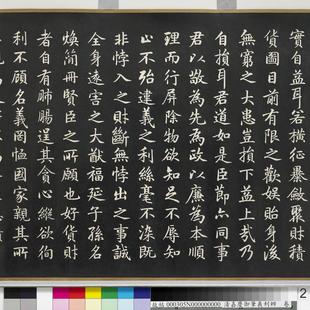 實自益耳若橫征暴斂聚財積
貨圖目前有限之歡娛貽身後
無窮之大患豈損下益上哉乃
自損耳君道如是臣節亦同事
君以敬為先為政以廉為本順
理而行屏除物欲知足不辱知
止不殆違義之利絲毫不染既
非悖入之財斷無悖出之事誠
全身遠害之大猷福延子孫名
煥簡冊賢臣之所願也好貨財
者自有肺腸逞其貪心縱欲徇
利不顧名義罔恤國家親其所
000305N000000000 清嘉慶御筆義利辨 卷
2